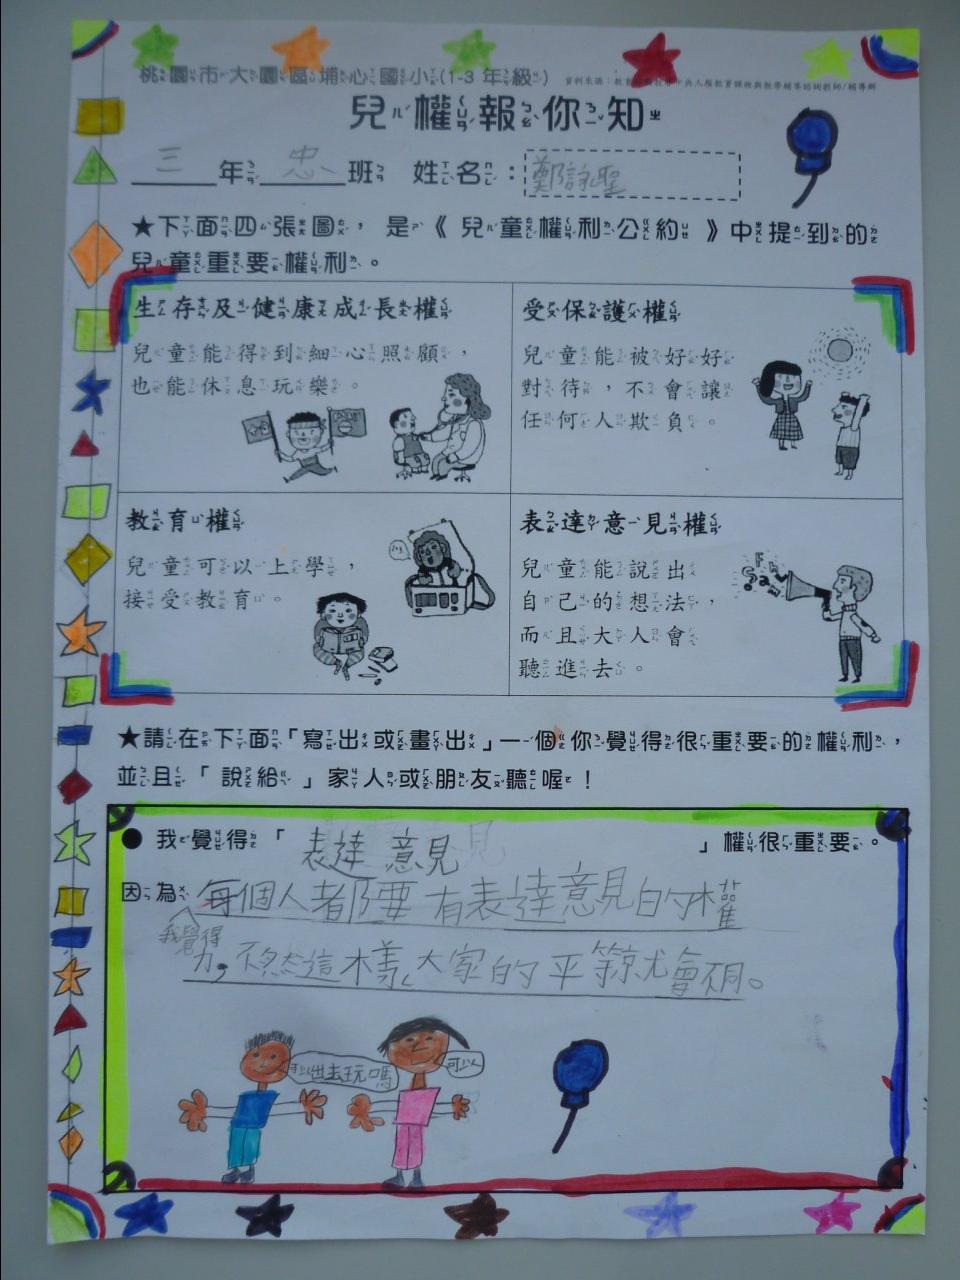 桃園市大園區埔心國小(1-3 年級)
兒權報你知
三年忠班 姓名：鄭詠聖
★下面四張圖，是《兒童權利公約》中提到的
兒童重要權利。
生存及健康成長權
兒童能得到細心照顧，
也能休息玩樂。
受保護權
兒童能被好好
對待，不會讓
任何人欺負。
教育權
兒童可以上學，
接受教育。
表達意見權
兒童能說出
自己的想法，
而且大人會
聽進去。
★請在下面「寫出或畫出」一個你覺得很重要的權利，
並且「說給」家人或朋友聽喔！
●我覺得「表達意見」權很重要。
因為我覺得每個人都要有表達意見的權
力，不然這樣大家的平等就會不同。
可以出去玩嗎
可以